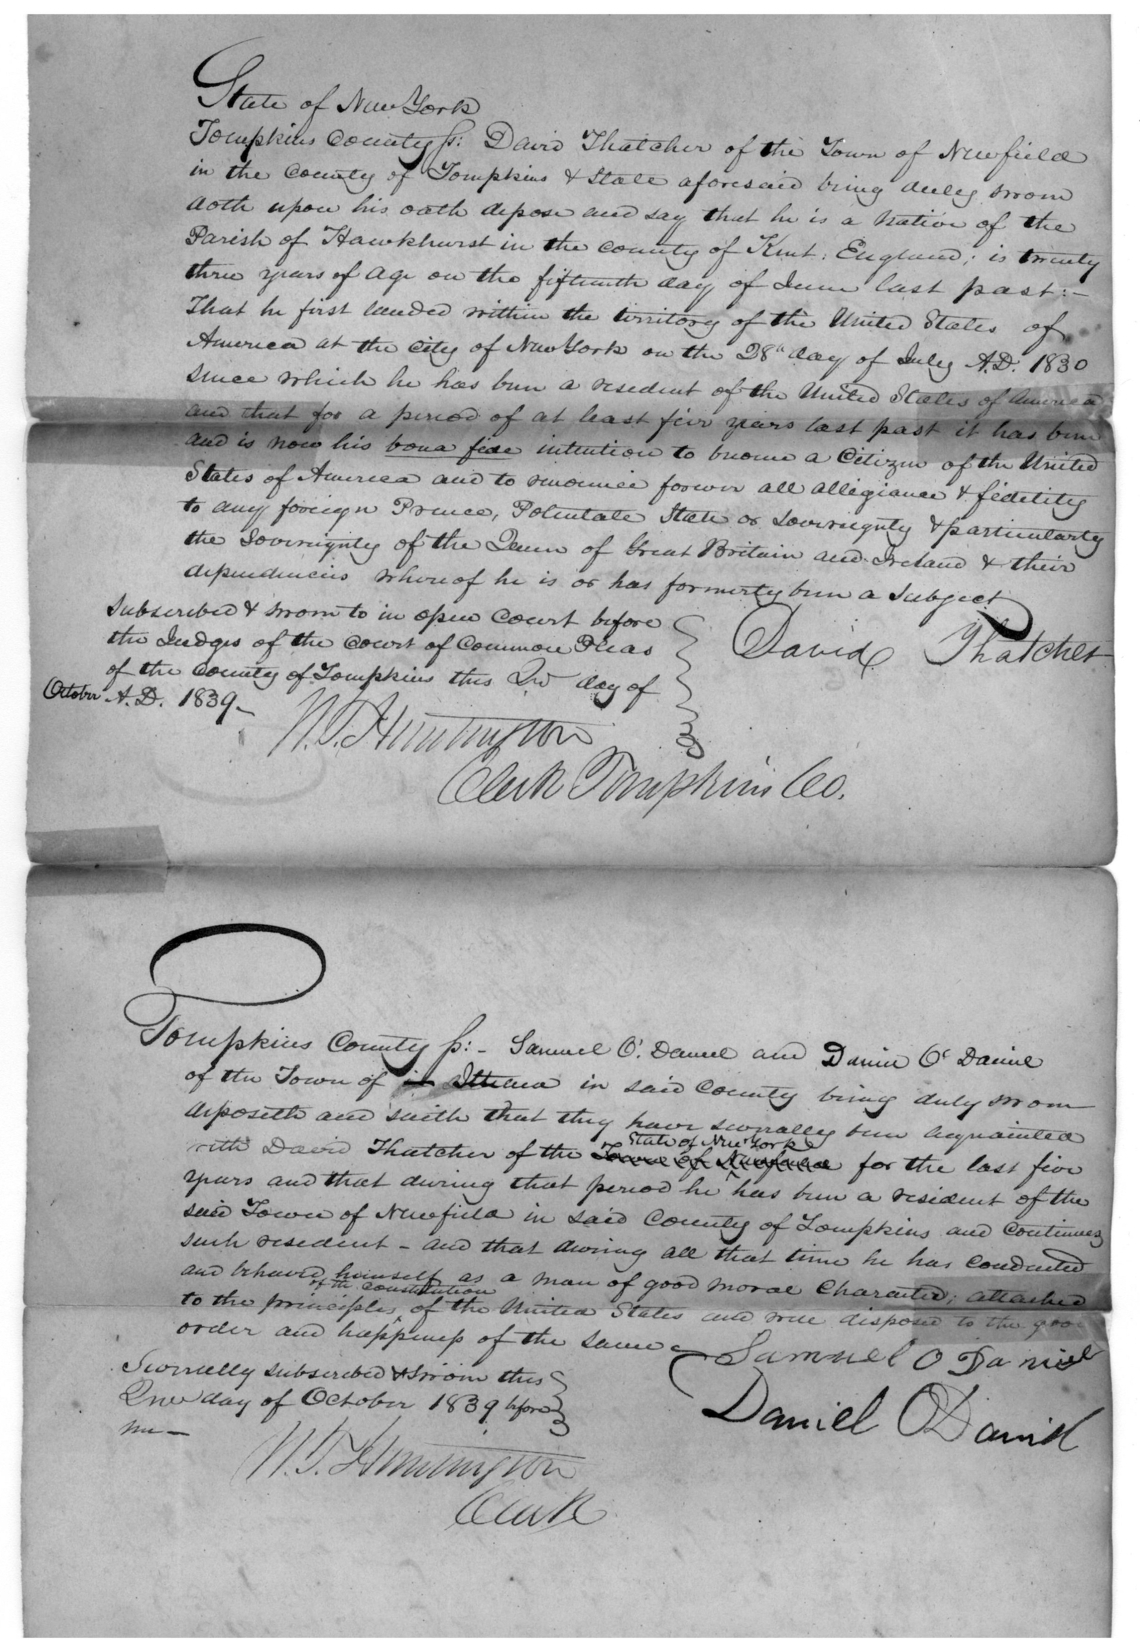 State of New York
Tompkins County ss: David Thatcher of the Town of Newfield
in the County of Tompkins & State aforesaid being duly sworn
doth upon his oath depose and say that he is a native of the
Parish of Hawkhurst in the county of Kent: England; is twenty
three years of age on the fifteenth day of June last past:-
That he first landed within the territory of the United States of
America at the city of New York on the 28th day of July A.D. 1830
since which he has been a resident of the United States of America
and that for a period of at least five years last past it has been
and is now his bona fide intention to become a Citizen of the United
States of America and to renounce forever all allegiance & fidelity
to any foreign Prince, Potentate State or Sovereignty & particularly
the Sovereignty of the Queen of Great Britain and Ireland & their
dependencies whereof he is or has formerly been a Subject
Subscribed & sworn to in open Court before
the Judges of the Court of Common Pleas
of the County of Tompkins this 2nd day of
October A.D. 1839-
David Thatcher
N.T. Huntington
Clerk Tompkins Co.
Tompkins County ss:- Samuel O'. Daniel and Daniel O' Daniel
of the Town of in Ithaca in said County being duly sworn
deposeth and saith that they have severally been acquainted
State of New York
with David Thatcher of the Town of Newfield for the last five
years and that during that period he has been a resident of the
said Town of Newfield in said County of Tompkins and continues
such resident - and that during all that time he has conducted
and behaved himself as a man of good moral Character; attached
of the Constitution
to the principles of the United States and well disposed to the good
order and happiness of the same
Samuel O Daniel
Daniel O Daniel
Severally subscribed & sworn this
2nd day of October 1839 before
me-
N.T. Huntington
Clerk